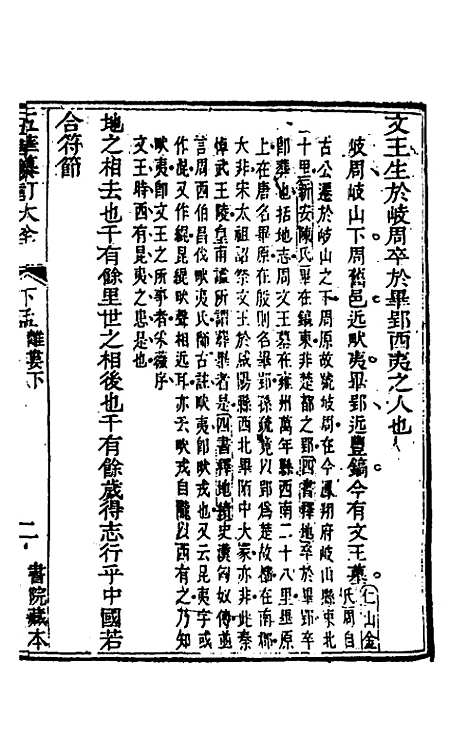 文王生於岐周卒於畢郢西夷之人也
岐周岐山下周舊邑近畎夷畢郢近豐鎬今有文王墓
仁山金
氏周自
古公遷於岐山之下周原故號岐周在今鳳翔府岐山縣東北
十里新安陳氏畢在鎬東非楚都之郢四書釋地卒於畢郢卒
卽葬也括地志周文王墓在雍州萬年縣西南二十八里畢原
上在唐名畢原在殷則名畢郢孫疏竟以郢爲楚故檀在南郡
大非宋太祖詔祭文王於咸陽縣西北畢陌中大冢亦非此秦
悼武王陵皇甫謐所謂葬畢者是四書釋地續史漢匈奴傳並
言周西伯昌伐畎夷氏師古註畎夷卽犬戎也又曰昆夷字或
作混又作緄昆緄畎聲相近耳亦云畎戎自隴以西有之乃知
畎夷卽文王之所事者采薇序
文王時西有昆夷之患是也
地之相去也千有餘里世之相後也千有餘歲得志行乎中國若
合符節
五華纂訂大全
下孟
離婁下
二
書院藏本